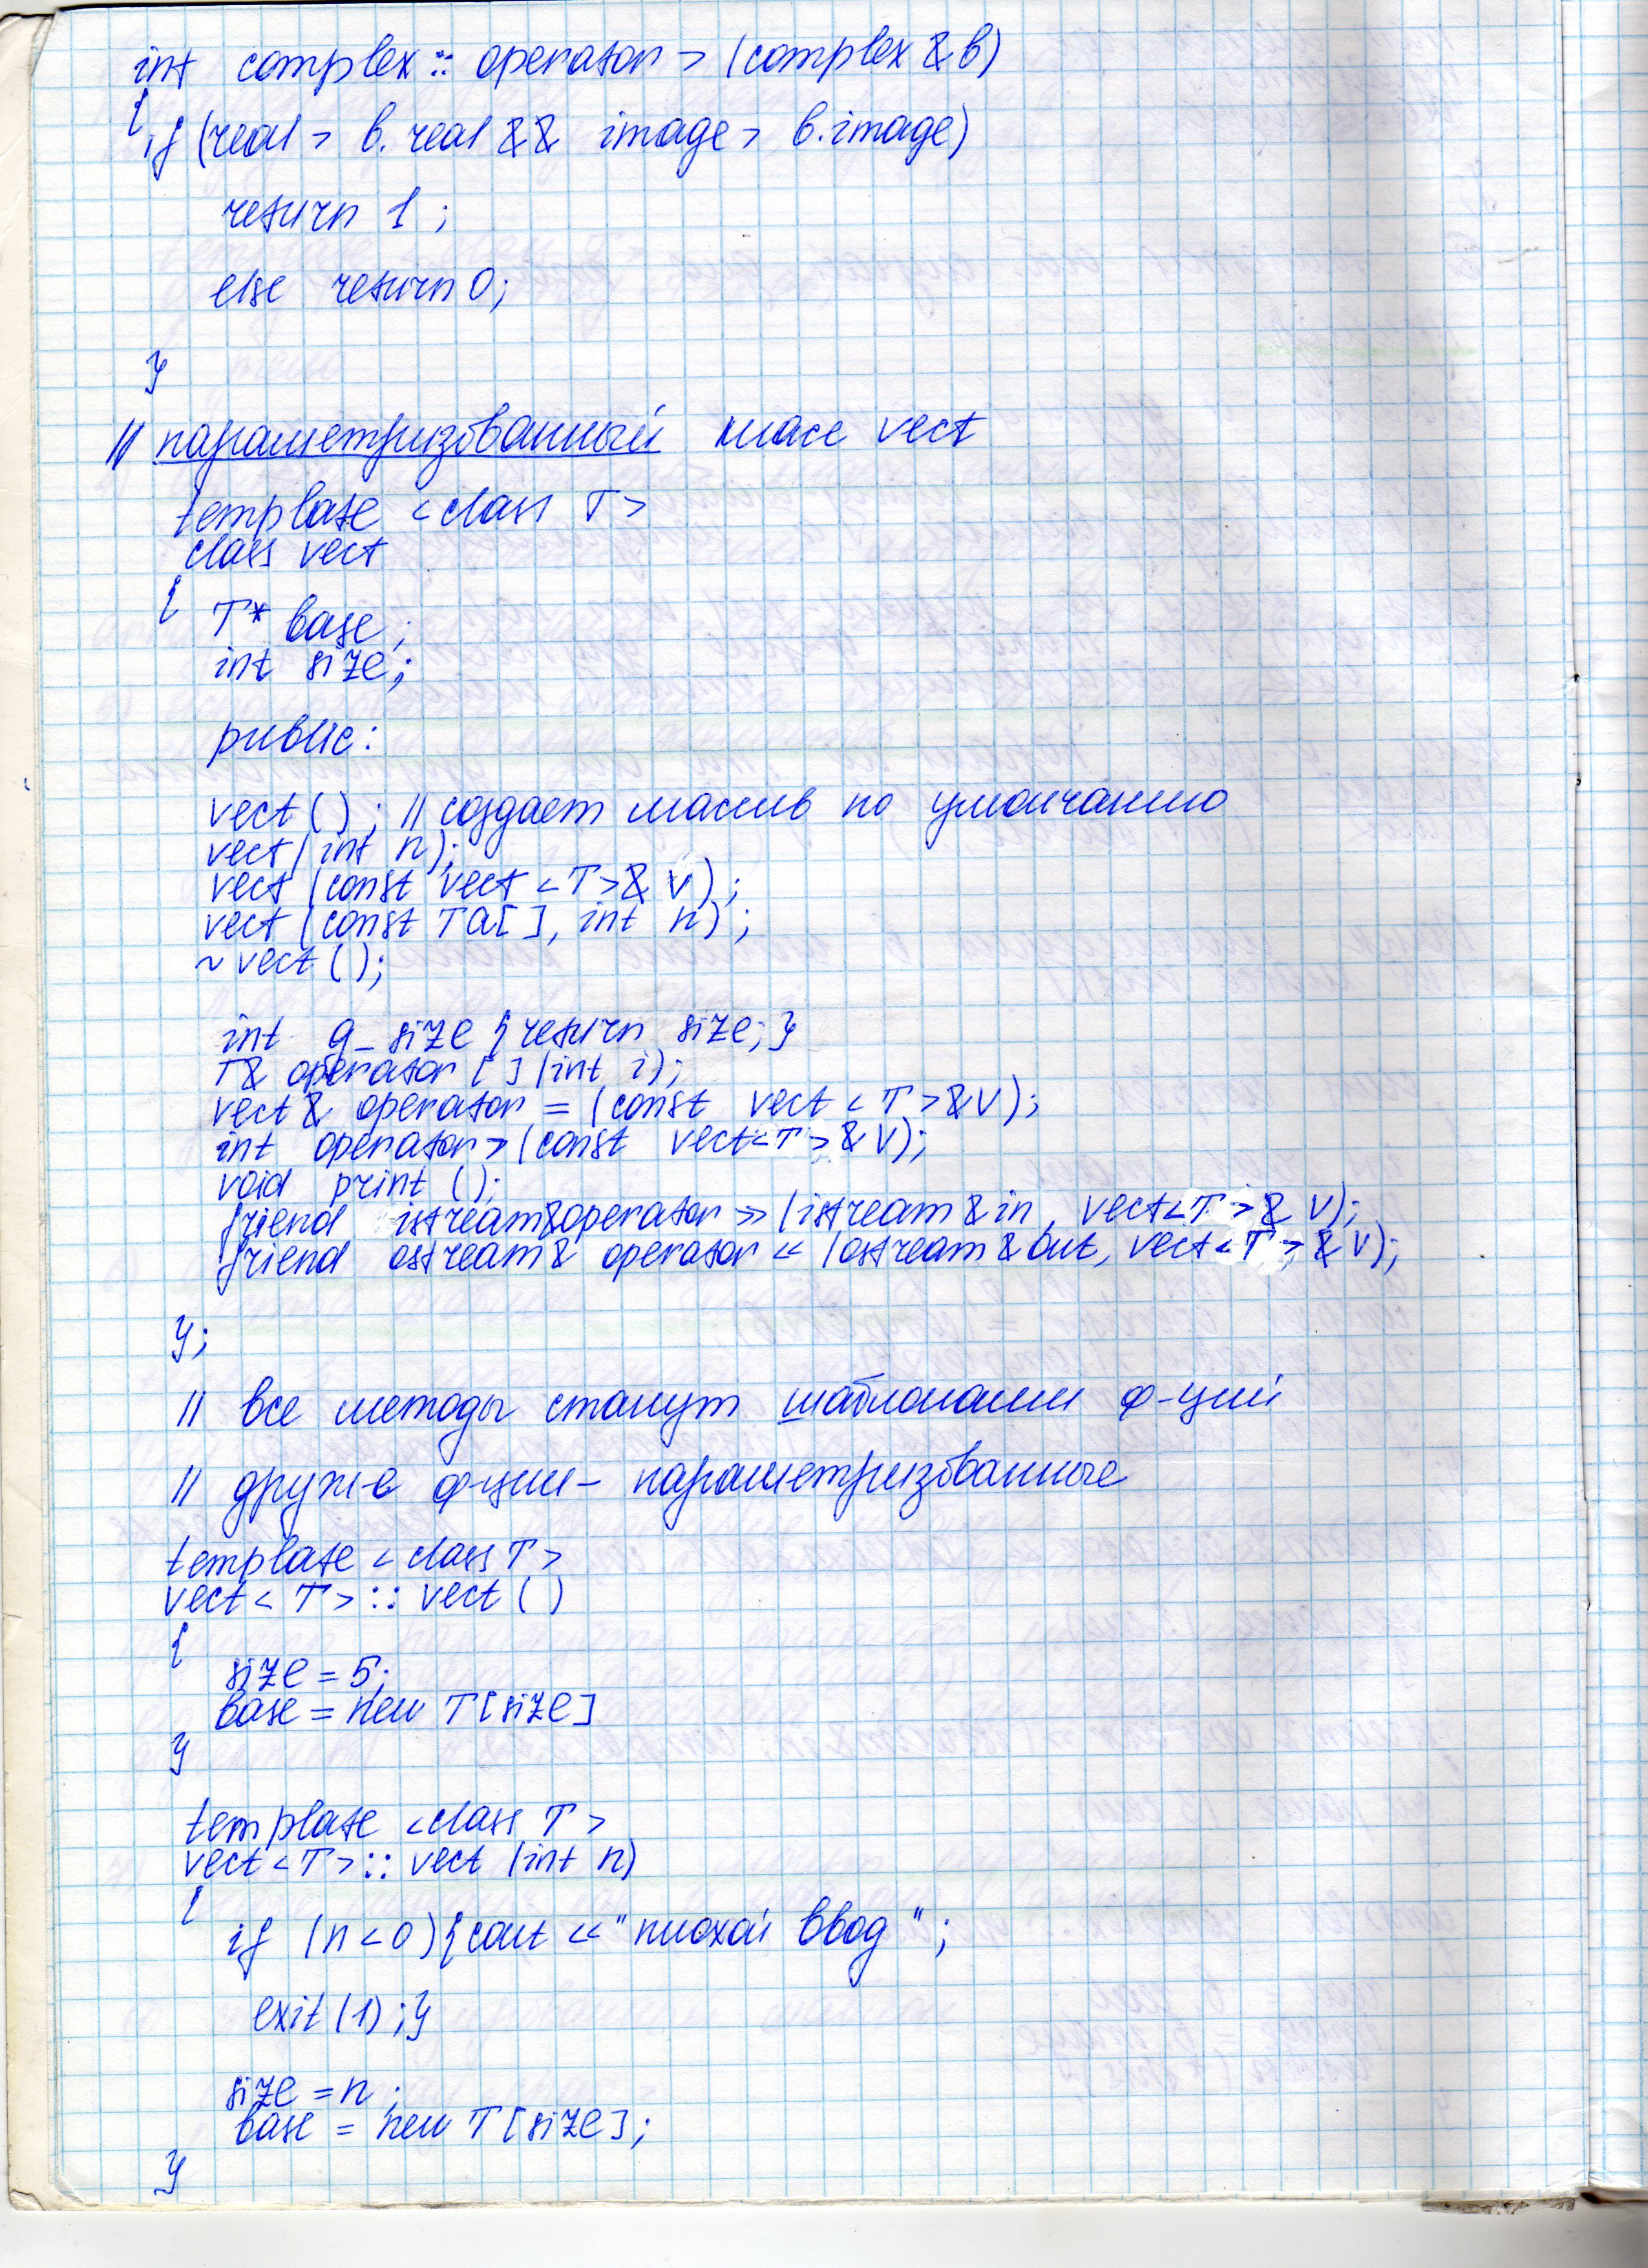 int complex :: operator > (complex & b)
{
if (real > b.real && image > b.image)
return 1 ;
else return 0;
}
// параметризованный класс vect
template <class T>
class vect
{
T* base;
int size;
public:
vect ( ) ; // создает массив по умолчанию
vect (int n);
vect (const vect <T>& V) ;
vect (const T a[ ], int n) ;
~ vect ( );
int g_size {return size; }
T& operator [ ] (int i);
vect & operator = (const vect < T > & V);
int operator > (const vect<T> & V);
void print ( );
friend istream&operator >> (istream & in, vect<T> & V);
friend ostream& operator << (ostream & out, vect<T> & V);
};
// все методы станут шаблонами ф-ций
// друж-е ф-ции - параметризованные
template < class T>
vect< T> :: vect ( )
{
size = 5;
base = new T [size]
}
template <class T>
vect <T> :: vect (int n)
{
if (n < 0) {cout << "плохой ввод" ;
exit (1) ;}
size = n ;
base = new T [size] ;
}